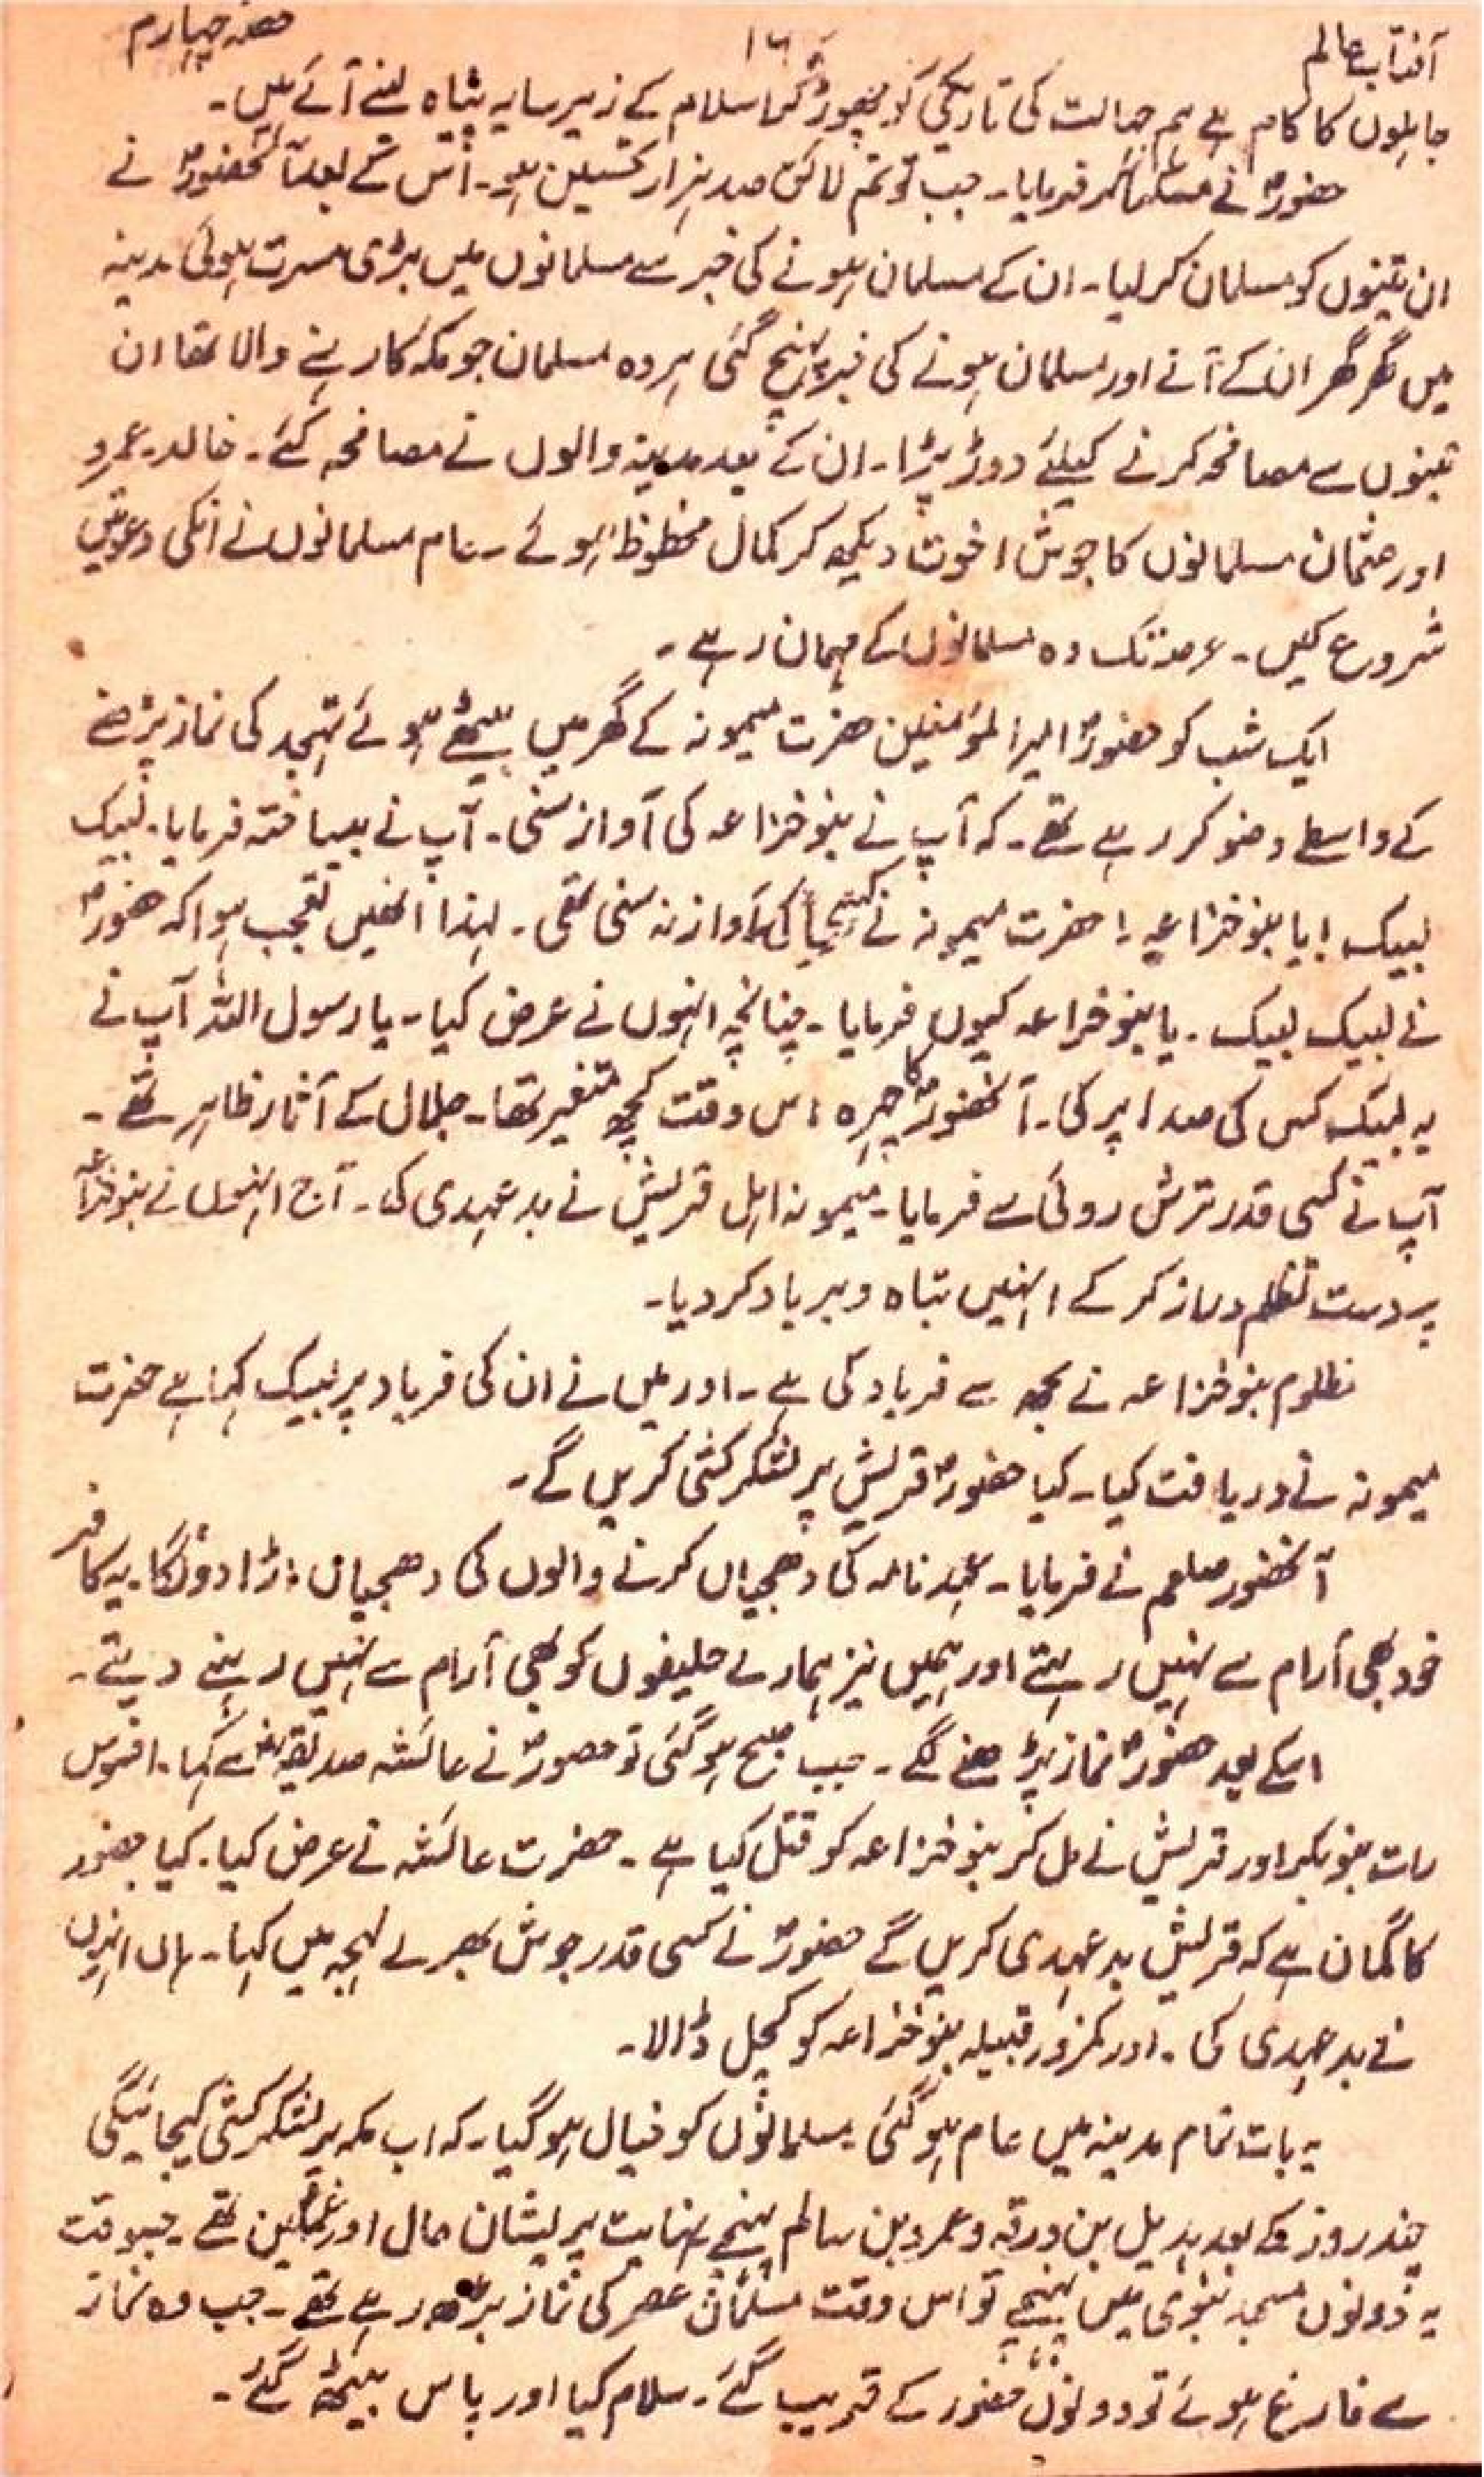 آفتاب عالم ۱۶ حصہ چہارم
جاہلوں کا کام ہے ہم جہالت کی تاریکی کو چھوڑ کر اسلام کے زیر سایہ پناہ لینے آئے ہیں۔
حضورؐ نے مسکرا کر فرمایا۔ جب تو تم لائق صد ہزار تحسین ہو۔ اس کے بعد آنحضورؐ نے
ان تینوں کو مسلمان کر لیا۔ ان کے مسلمان ہونے کی خبر سے مسلمانوں میں بڑی مسرت ہوئی مدینہ
میں گھر گھر ان کے آنے اور مسلمان ہونے کی خبر پہنچ گئی ہر وہ مسلمان جو مکہ کا رہنے والا تھا ان
تینوں سے مصافحہ کرنے کیلئے دوڑ پڑا۔ ان کے بعد مدینہ والوں نے مصافحہ کئے۔ خالد۔ عمرو
اور عثمان مسلمانوں کا جوش اخوت دیکھ کر کمال محظوظ ہوئے۔ عام مسلمانوں نے انکی دعوتیں
شروع کیں۔ عرصہ تک وہ مسلمانوں کے مہمان رہے۔
ایک شب کو حضورؐ ام المؤمنین حضرت میمونہ کے گھر میں بیٹھے ہوئے تہجد کی نماز پڑھنے
کے واسطے وضو کر رہے تھے۔ کہ آپ نے بنو خزاعہ کی آواز سنی۔ آپ نے بیساختہ فرمایا۔ لبیک
لبیک! یا بنو خزاعہ! حضرت میمونہ نے آواز نہ سنی تھی۔ لہذا انھیں تعجب ہوا کہ حضورؐ
نے لبیک لبیک۔ یا بنو خزاعہ کیوں فرمایا۔ چنانچہ انہوں نے عرض کیا۔ یا رسول اللہ آپ نے
یہ لبیک کس کی صدا پر کی۔ آنحضورؐ کا چہرہ اس وقت کچھ متغیر تھا۔ جلال کے آثار ظاہر تھے۔
آپ نے کسی قدر ترش روئی سے فرمایا۔ میمونہ اہل قریش نے بد عہدی کی۔ آج انہوں نے بنو خزاعہ
پر دست تظلم دراز کر کے انہیں تباہ و برباد کر دیا۔
مظلوم بنو خزاعہ نے مجھ سے فریاد کی ہے۔ اور میں نے ان کی فریاد پر لبیک کہا ہے حضرت
میمونہ نے دریافت کیا۔ کیا حضورؐ قریش پر لشکر کشی کریں گے۔
آنحضور صلعم نے فرمایا۔ عہد نامہ کی دھجیاں کرنے والوں کی دھجیاں اڑا دونگا۔ یہ کافر
خود بھی آرام سے نہیں رہتے اور ہمیں نیز ہمارے حلیفوں کو بھی آرام سے نہیں رہنے دیتے۔
اسکے بعد حضورؐ نماز پڑھنے لگے۔ جب صبح ہو گئی تو حضورؐ نے عائشہ صدیقہؓ سے کہا۔ افسوس
رات بنو بکر اور قریش نے مل کر بنو خزاعہ کو قتل کیا ہے۔ حضرت عائشہ نے عرض کیا۔ کیا حضور
کا گمان ہے کہ قریش بد عہدی کریں گے حضورؐ نے کسی قدر جوش بھرے لہجہ میں کہا۔ ہاں انہوں
نے بد عہدی کی۔ اور کمزور قبیلہ بنو خزاعہ کو کچل ڈالا۔
یہ بات تمام مدینہ میں عام ہو گئی۔ مسلمانوں کو خیال ہو گیا۔ کہ اب مکہ پر لشکر کشی کیجائیگی
چند روز کے بعد بدیل بن ورقہ و عمرو بن سالم پہنچے نہایت پریشان حال اور غمگین تھے۔ جسوقت
یہ دونوں مسجد نبوی میں پہنچے تو اس وقت مسلمان عصر کی نماز پڑھ رہے تھے۔ جب وہ نماز
سے فارغ ہوئے تو دونوں حضور کے قریب گئے۔ سلام کیا اور پاس بیٹھ گئے۔